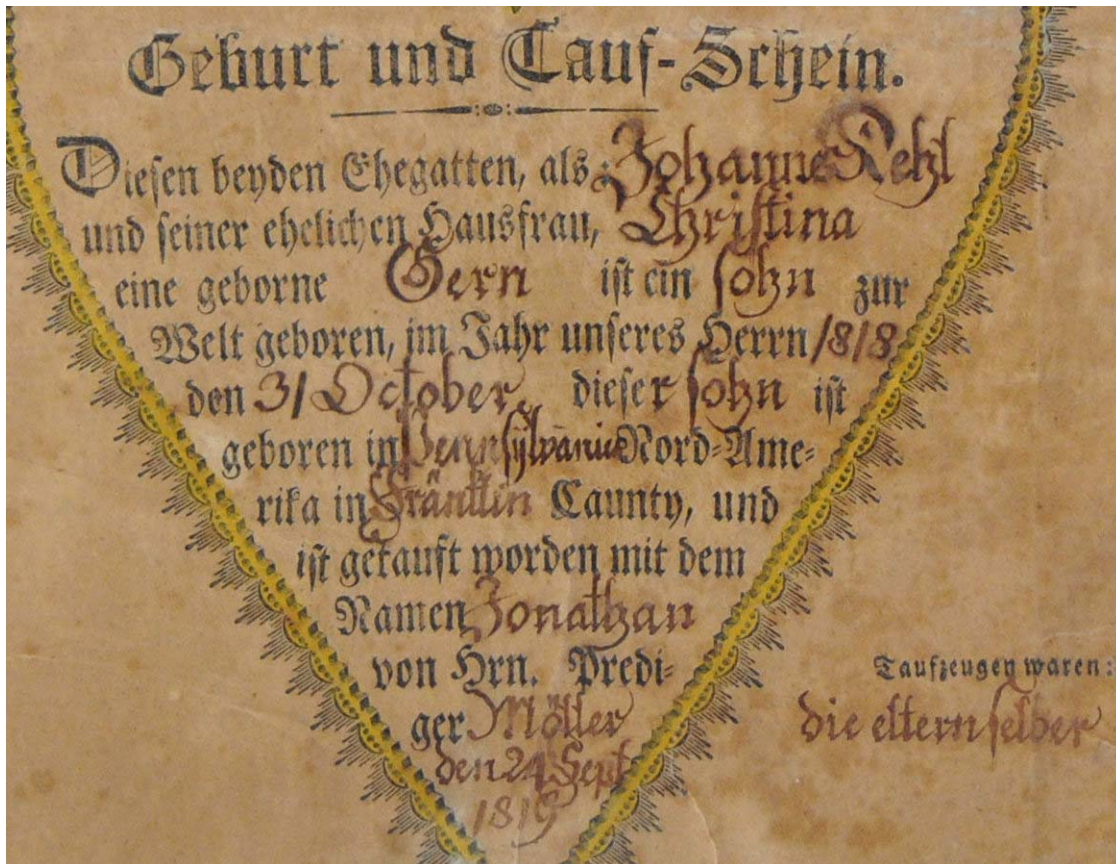 Geburt und Tauf-Schein.
Diesen beyden Ehegatten, als: Johannes Kehl
und seiner ehelichen Hausfrau, Christina
eine geborne Gern ist ein sohn zur
Welt geboren, im Jahr unseres Herrn 1818
den 31 October, dieser sohn ist
geboren in Pennsylvanie Nord-Ame-
rika in Fränklin Caunty, und
ist getauft worden mit dem
Namen Jonathan
von Hrn. Predi-
ger Möller
den 24 Sept
1819
Taufzeugen waren:
die eltern selber